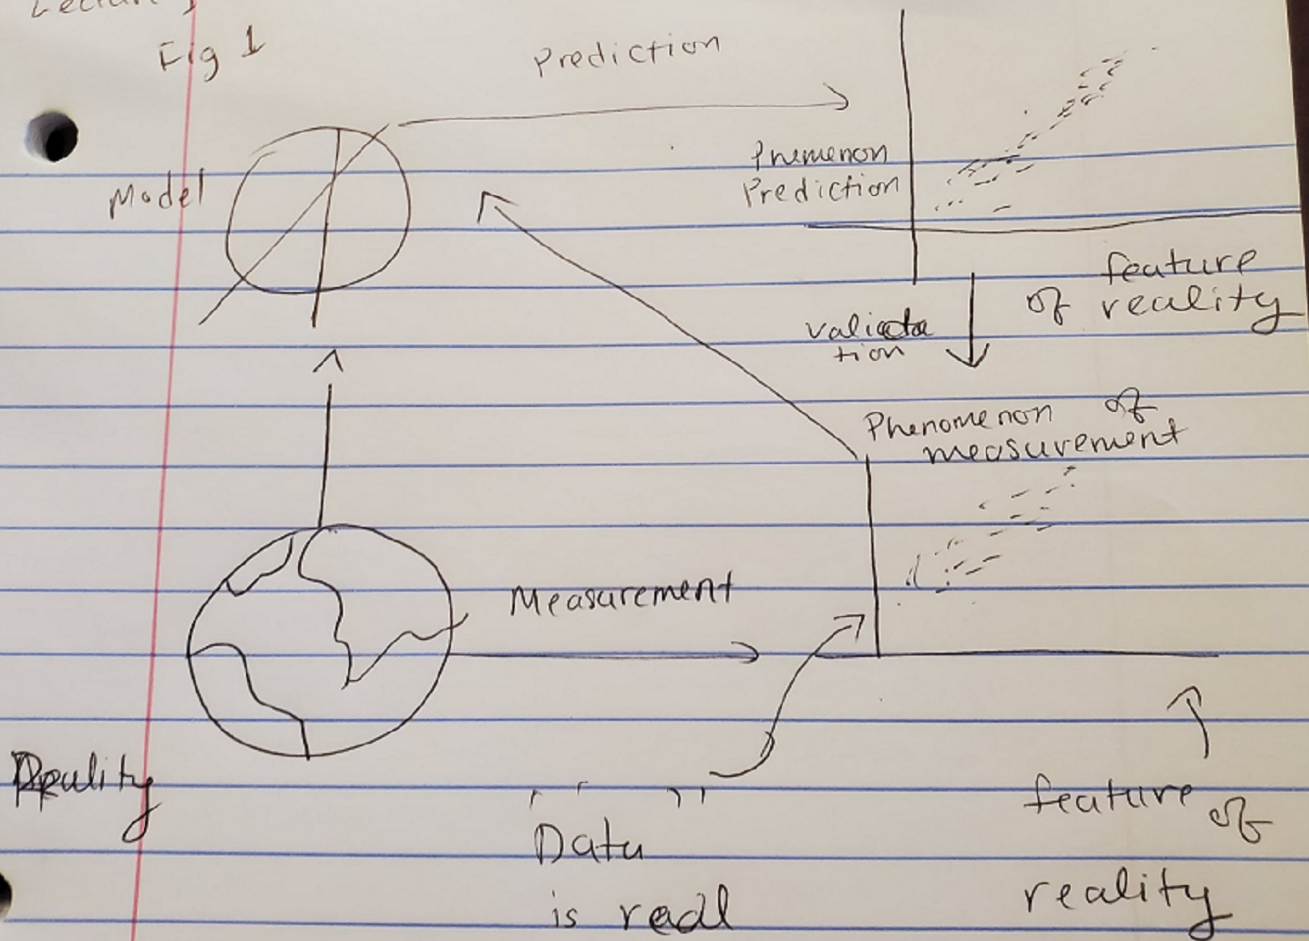 Lecture 1
Fig 1
Prediction
Model
Phemenon
Prediction
feature
of reality
valida
tion
Phenomenon of
measurement
Measurement
Reality
" "
Data
is real
feature of
reality